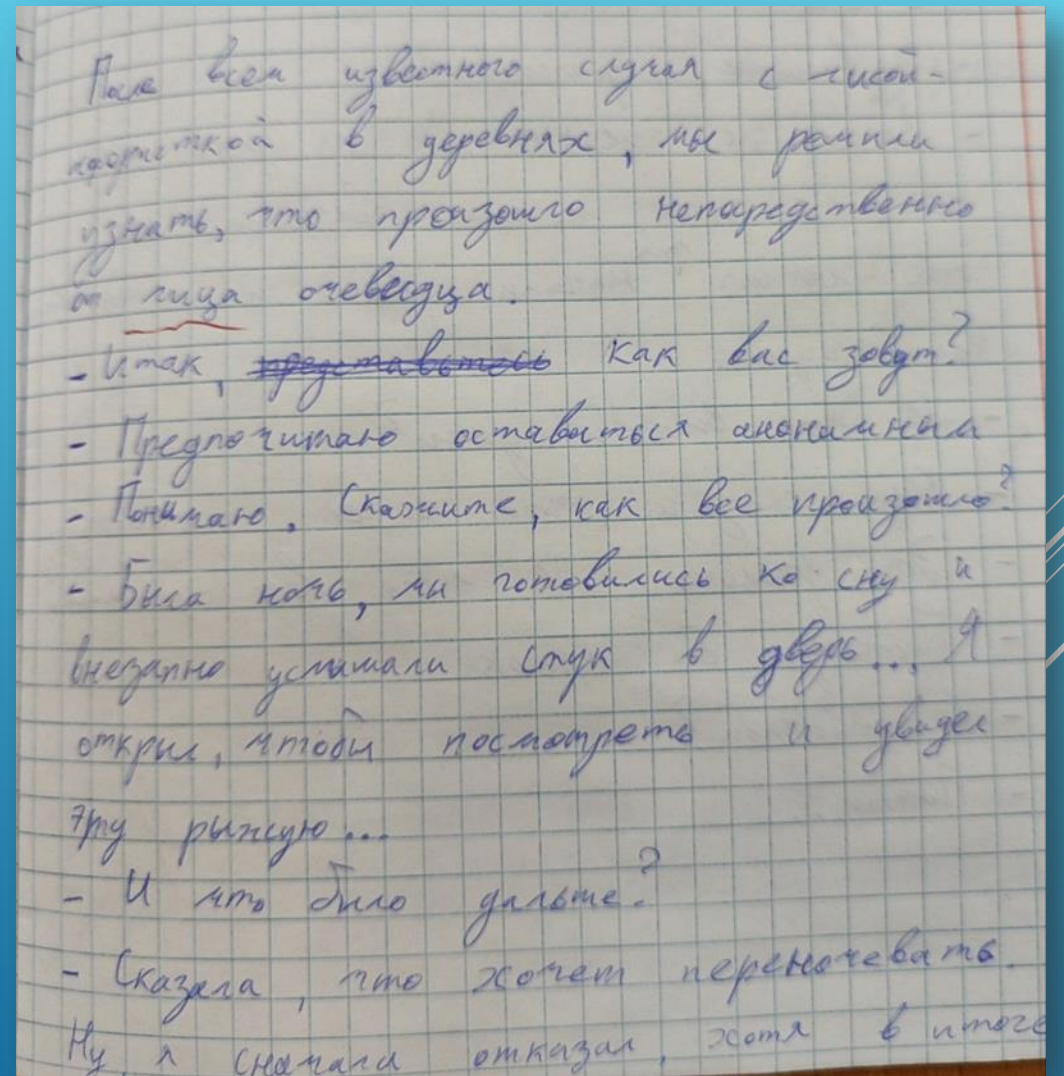 После всем известного случая с лисой-
аферисткой в деревнях, мы решили
узнать, что произошло непосредственно
от лица очевидца.
- Итак, представьтесь как вас зовут?
- Предпочитаю оставаться анонимным
- Понимаю. Скажите, как все произошло?
- Была ночь, мы готовились ко сну и
внезапно услышали стук в дверь... Я
открыл, чтобы посмотреть и увидел
эту рыжую...
- И что было дальше?
- Сказала, что хочет переночевать.
Ну я сначала отказал, хотя в итоге